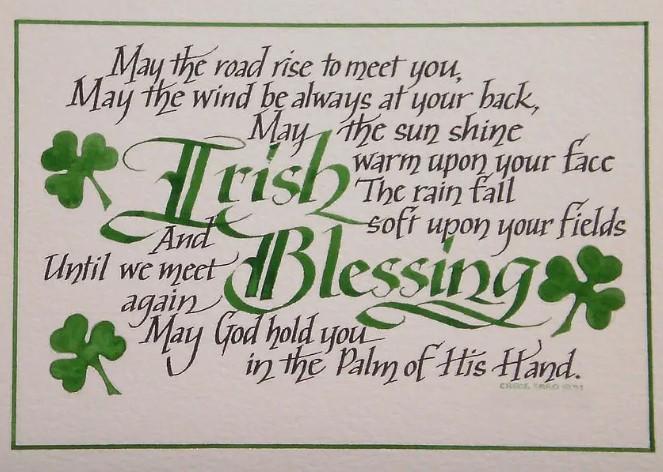 May the road rise to meet you,
May the wind be always at your back,
May the sun shine
warm upon your face
The rain fall
soft upon your fields
Irish
Blessing
And
Until we meet
again
May God hold you
in the Palm of His Hand.